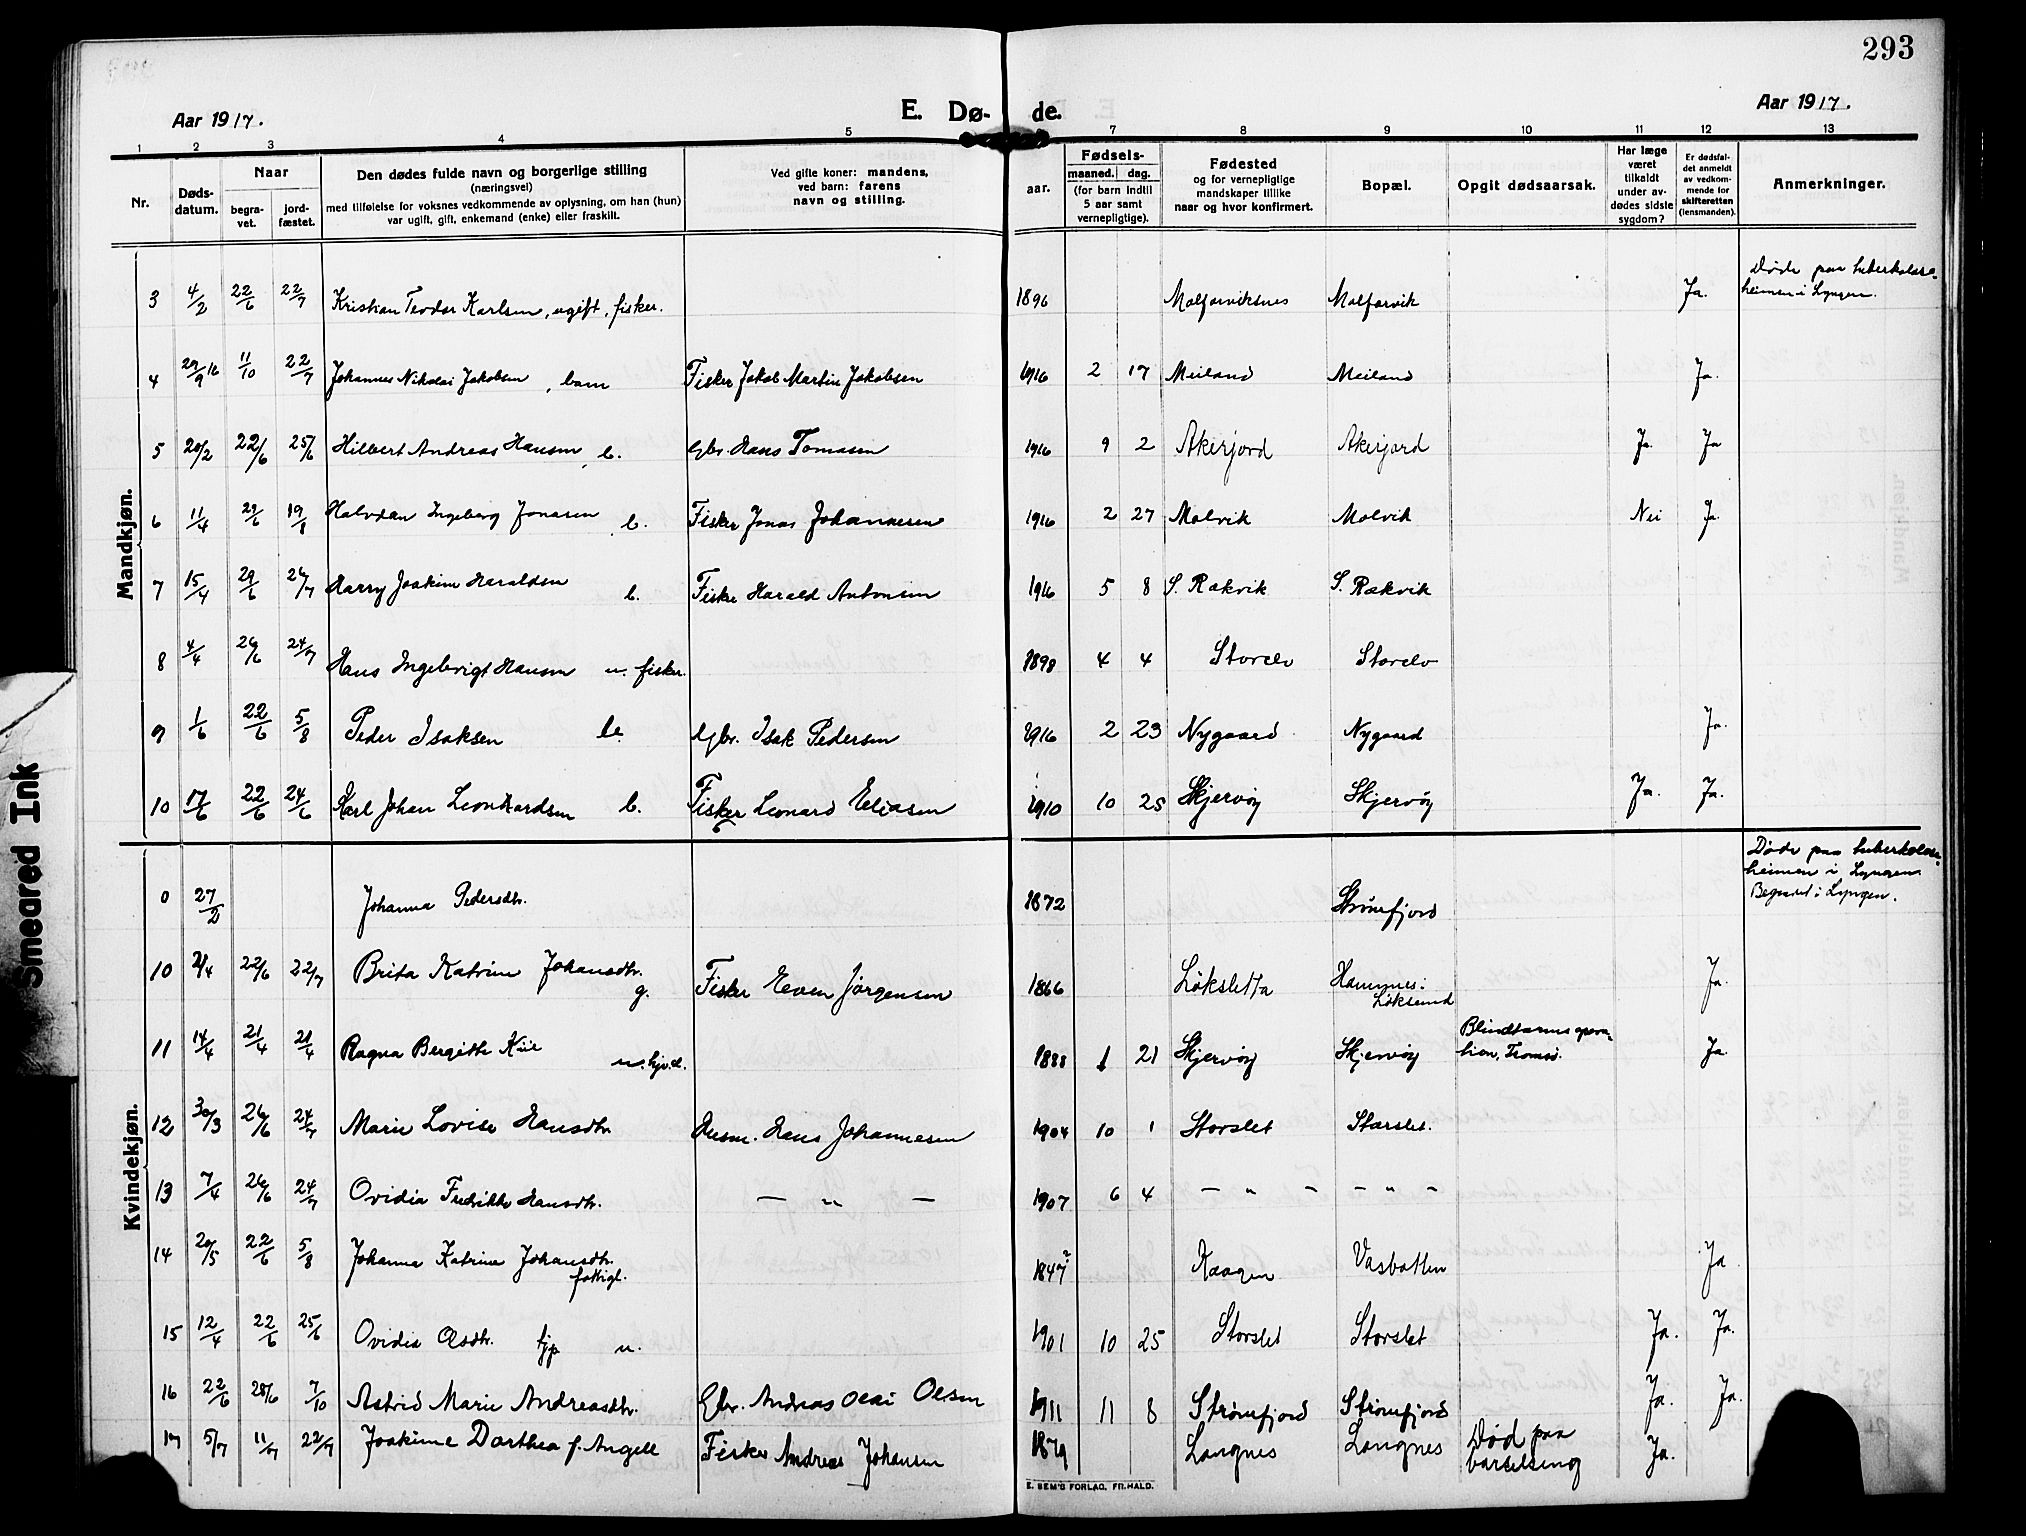 293
Aar 1917. E. Dø- de. Aar 1917.
1 2 3 4 5 7 8 9 10 11 12 13
Nr. Døds-datum. Naar begra-vet. jord-fæstet. Den dødes fulde navn og borgerlige stilling (næringsvei) med tilføielse for voksnes vedkommende av oplysning, om han (hun) var ugift, gift, enkemand (enke) eller fraskilt. Ved gifte koner: mandens, ved barn: farens navn og stilling. aar. Fødsels- maaned. dag. (for barn indtil 5 aar samt vernepligtige). Fødested og for vernepligtige mandskaper tillike naar og hvor konfirmert. Bopæl. Opgit dødsaarsak. Har læge været tilkaldt under av-dødes sidste sygdom? Er dødsfal-det anmeldt av vedkom-mende for skifteretten (lensmanden). Anmerkninger.
Mandkjøn.
3 4/2 22/6 22/7 Kristian Teodor Karlsen, ugift, fisker. 1896 Molforviksnes Molforvik Ja. Døde paa tuberkulose-heimen i Lyngen.
4 29/9 16 11/10 22/7 Johannes Nikolai Jakobsen, barn Fisker Jakob Martin Jakobsen 1916 2 17 Meiland Meiland Ja.
5 20/2 22/6 25/6 Hilbert Andreas Hansen, b. Gbr. Hans Tomasen 1916 9 2 Akerjord Akerjord Ja. Ja
6 11/4 29/6 19/8 Halvdan Ingeberg Jonasen, b. Fisker Jonas Johannesen 1916 2 27 Molvik Molvik Nei Ja.
7 15/4 29/6 26/7 Harry Joakim Haraldsen b. Fisker Harald Antonsen 1916 5 8 S. Rækvik S. Rækvik
8 4/4 26/6 24/7 Hans Ingebrigt Hansen u. fisker. 1898 4 4 Storelv Storelv
9 1/6 22/6 5/8 Peder Isaksen b. Gbr. Isak Pedersen 1916 2 23 Nygaard Nygaard Ja.
10 17/6 22/6 24/6 Karl Johan Leonhardsen b. Fisker Leonard Eliasen 1910 10 25 Skjervøy Skjervøy Ja. Ja.
Kvindekjøn.
0 27/2 Johanna Pedersdtr. 1872 Strømfjord Døde paa tuberkulose-heimen i Lyngen. Begravet i Lyngen.
10 2/4 22/6 22/7 Brita Katrine Johansdtr. g. Fisker Even Jørgensen 1866 Løksletta Hamnnes i Løksund Ja.
11 14/4 21/4 21/4 Ragna Bergitte Kiil u. hjv.d. 1888 1 21 Skjervøy Skjervøy Blindtarmsopera-tion, Tromsø. Ja.
12 30/3 26/6 24/7 Marie Lovise Hansdtr. Husm. Hans Johannesen 1904 10 1 Storslet Storslet.
13 7/4 26/6 24/7 Ovidia Fredrikke Hansdtr. — " — 1907 6 4 — " — — " —
14 20/5 22/6 5/8 Johanna Katrine Johansdtr. fattigl. 1847? Kaagen Vasbotten Ja
15 12/4 22/6 25/6 Ovidia Olsdtr. tjp u. 1901 10 25 Storslet Storslet Ja. Ja.
16 22/6 28/6 7/10 Astrid Marie Andreasdtr. Gbr. Andreas Olai Olsen 1911 11 8 Strømfjord Strømfjord Ja. Ja.
17 5/7 11/7 22/7 Joakime Dorthea f. Angell Fisker Andreas Johansen 1879 Langnes Langnes Død paa barselseng Ja.
E. SEM'S FORLAG, FR.HALD.
Smeared Ink